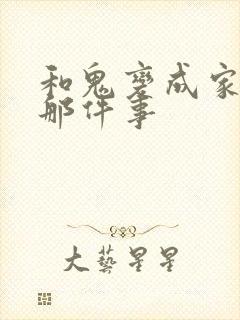 和鬼变成家
那件事
大藝星星